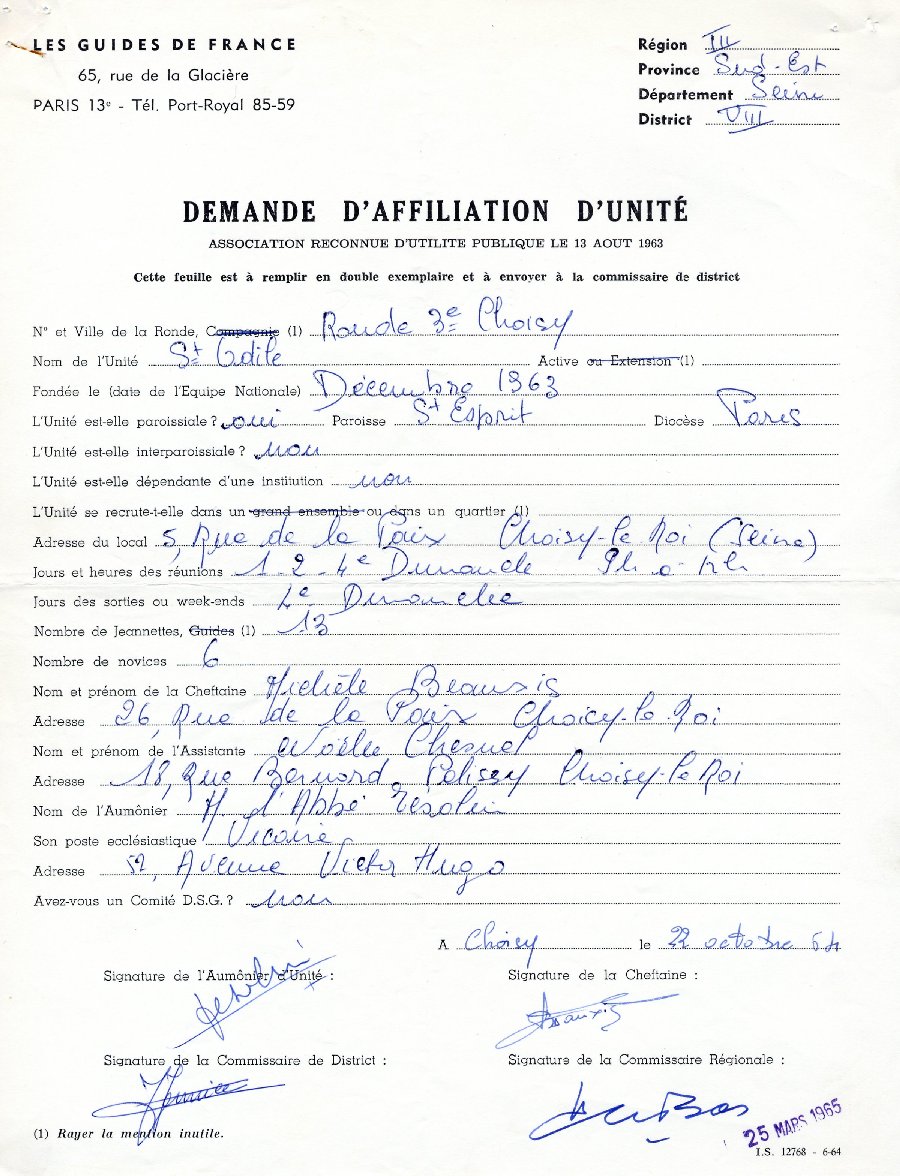 LES GUIDES DE FRANCE
65, rue de la Glacière
PARIS 13e - Tél. Port-Royal 85-59
Région III
Province Sud-Est
Département Seine
District VIII
DEMANDE D'AFFILIATION D'UNITÉ
ASSOCIATION RECONNUE D'UTILITE PUBLIQUE LE 13 AOUT 1963
Cette feuille est à remplir en double exemplaire et à envoyer à la commissaire de district
N° et Ville de la Ronde, Compagnie (1) Ronde 3e Choisy
Nom de l'Unité St Odile Active ou Extension (1)
Fondée le (date de l'Equipe Nationale) Décembre 1963
L'Unité est-elle paroissiale ? oui Paroisse St Esprit Diocèse Paris
L'Unité est-elle interparoissiale ? non
L'Unité est-elle dépendante d'une institution non
L'Unité se recrute-t-elle dans un grand ensemble ou dans un quartier (1)
Adresse du local 5, Rue de la Paix Choisy-le Roi (Seine)
Jours et heures des réunions 1-2-4e Dimanche 9h à 12h
Jours des sorties ou week-ends 4e Dimanche
Nombre de Jeannettes, Guides (1) 13
Nombre de novices 6
Nom et prénom de la Cheftaine Michèle Beauxis
Adresse 26, Rue de la Paix Choicy-le-Roi
Nom et prénom de l'Assistante Noëlle Chesnel
Adresse 18, Rue Bernard Palissy Choisy-le Roi
Nom de l'Aumônier M. l'Abbé
Son poste ecclésiastique Vicaire
Adresse 52, Avenue Victor Hugo
Avez-vous un Comité D.S.G. ? non
A Choisy le 22 octobre 64
Signature de l'Aumônier d'Unité :
Signature de la Cheftaine :
Beauxis
Signature de la Commissaire de District :
Signature de la Commissaire Régionale :
25 MARS 1965
(1) Rayer la mention inutile.
I.S. 12768 - 6-64